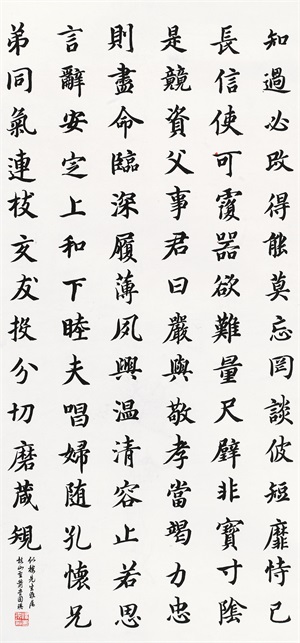 知過必改得能莫忘罔談彼短靡恃己
長信使可覆器欲難量尺璧非寶寸陰
是競資父事君曰嚴與敬孝當竭力忠
則盡命臨深履薄夙興温清容止若思
言辭安定上和下睦夫唱婦随孔懷兄
弟同氣連枝交友投分切磨箴規
先生雅屬